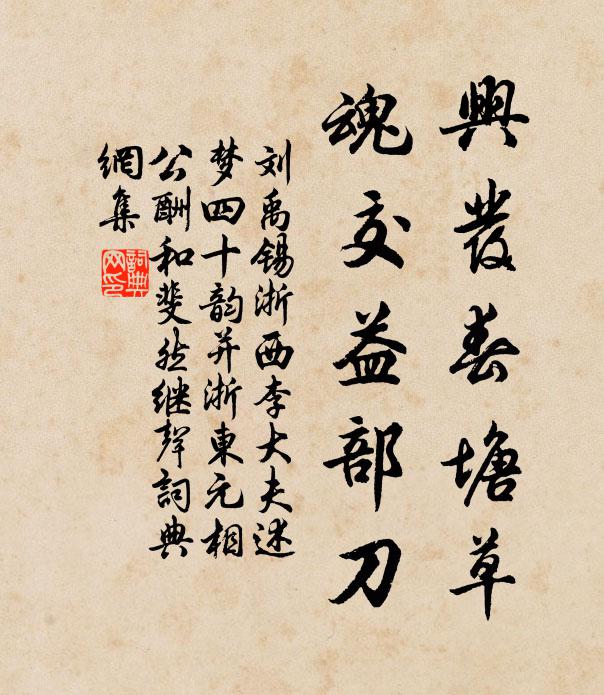 興發春塘草
魂交益部刀
刘禹锡浙西李大夫述
梦四十韵并浙東元相
公酬和斐然继聲詞典
網集
詞典
网印